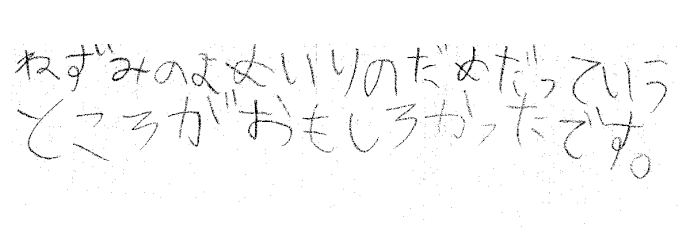 ねずみのよめいりのだめだっていう
ところがおもしろかったです。